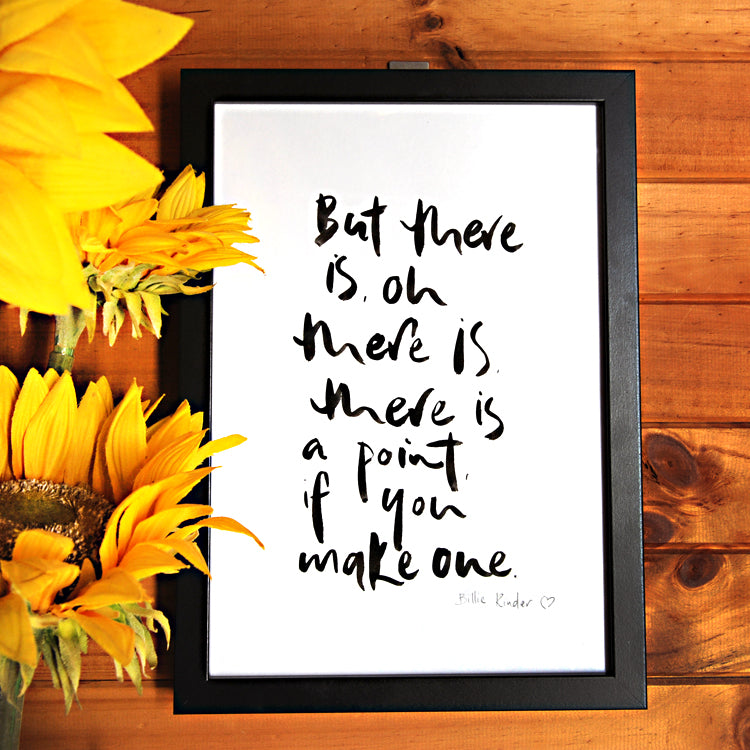 But there
is, oh
there is,
there is
a point,
if you
make one.
Billie Kinder ♡